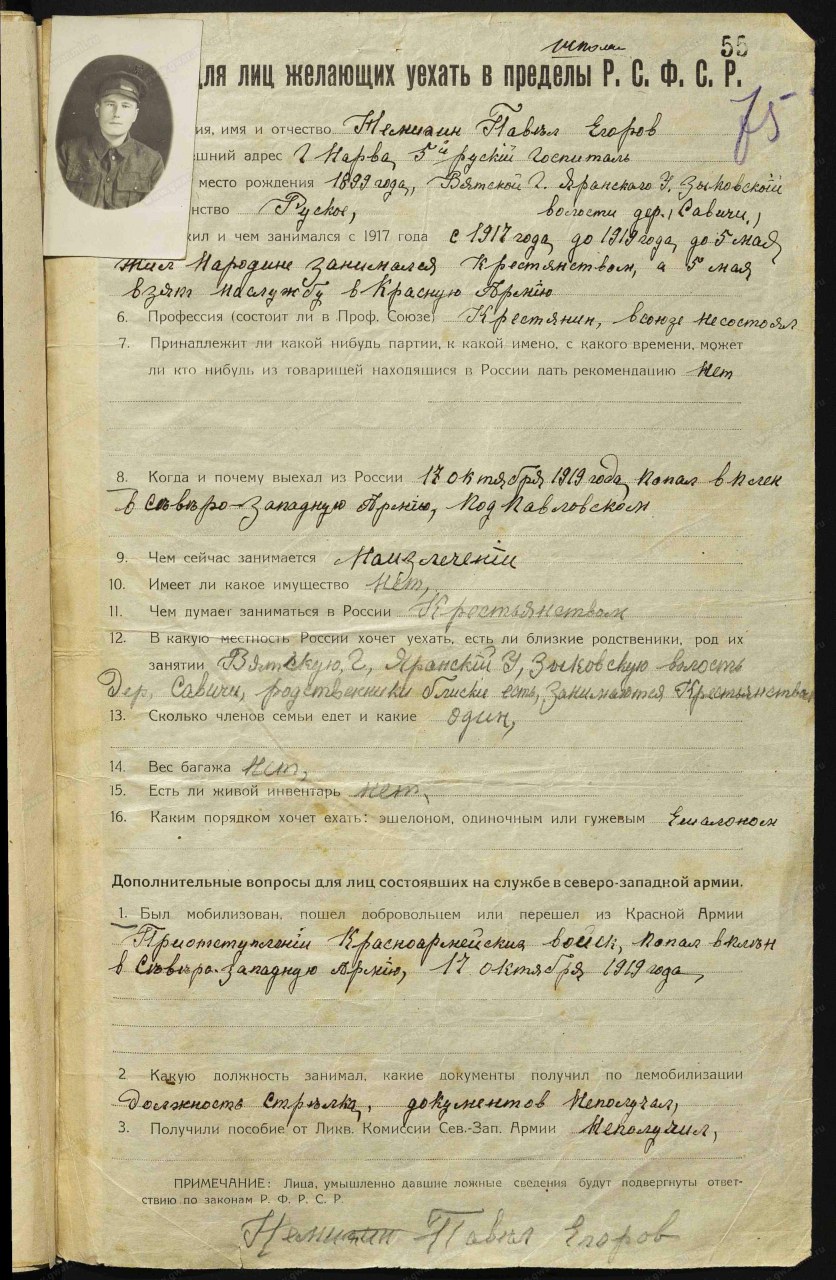 исполн
55
для лиц желающих уехать в пределы Р. С. Ф. С. Р.
75
ия, имя и отчество Павѣл Егоров
ешний адрес Г Нарва, 5й руский госпиталь
место рождения 1899 года, Вятской Г. Яранскаго У. Зыковский
нство Руское, волости дер, Савичи,
жил и чем занимался с 1917 года с 1917 года, до 1919 года, до 5 мая,
жил Народине занимался Крестянством, а 5 мая
взят наслужбу в Красную Армию
6. Профессия (состоит ли в Проф. Союзе) Крестянин, всоюзе несостоял
7. Принадлежит ли какой нибудь партии, к какой имено, с какого времени, может
ли кто нибудь из товарищей находящися в России дать рекомендацию Нет
8. Когда и почему выехал из России 17 октября 1919 года, попал в плен
в Сѣвѣро-Западную Армію, под Павловском
9. Чем сейчас занимается Наизлечении
10. Имеет ли какое имущество Нет,
11. Чем думает заниматься в России Крестьянством
12. В какую местность России хочет уехать, есть ли близкие родственики, род их
занятии Вятскую, Г, Яранскій У, Зыковскую волость
Дер, Савичи, родственники блиски есть, Занимаются Крестьянством
13. Сколько членов семьи едет и какие один,
14. Вес багажа Нет,
15. Есть ли живой инвентарь нет,
16. Каким порядком хочет ехать: эшелоном, одиночным или гужевым Ешалоном
Дополнительные вопросы для лиц состоявших на службе в северо-западной армии.
1. Был мобилизован, пошел добровольцем или перешел из Красной Армии
Приотступлении Красноармейския войск, попал вплѣн
в Сѣвѣро-Западную Армію, 17 октября 1919 года,
2 Какую должность занимал, какие документы получил по демобилизации
Должность Стрѣлка, документов Неполучал,
3. Получили пособие от Ликв. Комиссии Сев.-Зап. Армии Неполучил,
ПРИМЕЧАНИЕ: Лица, умышленно давшие ложные сведения будут подвергнуты ответ-
ствию по законам Р. Ф. Р. С. Р.
Павѣл Егоров